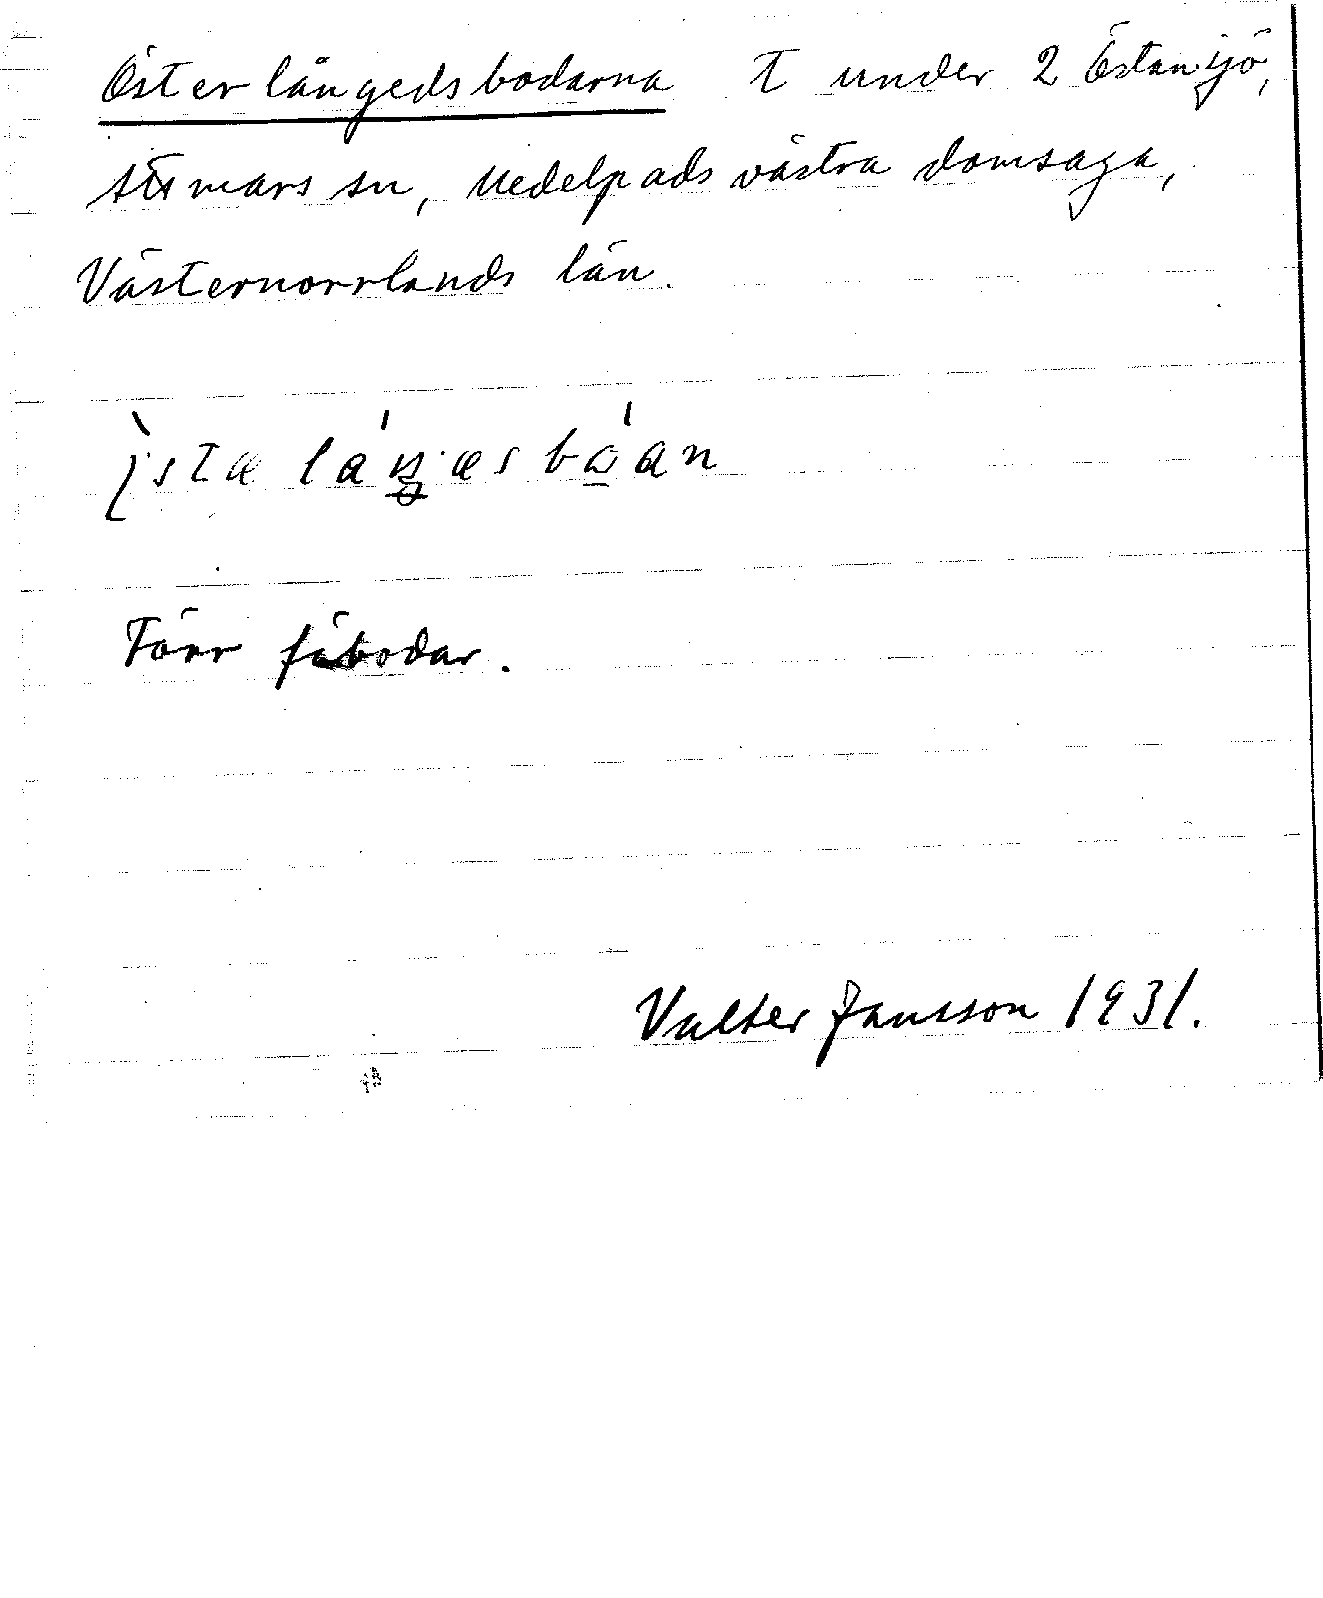 Österlångedsbodarna T under 2 Östansjö,
Attmars sn, Medelpads västra domsaga,
Västernorrlands län.
Förr fäbodar.
Valter Jansson 1931.